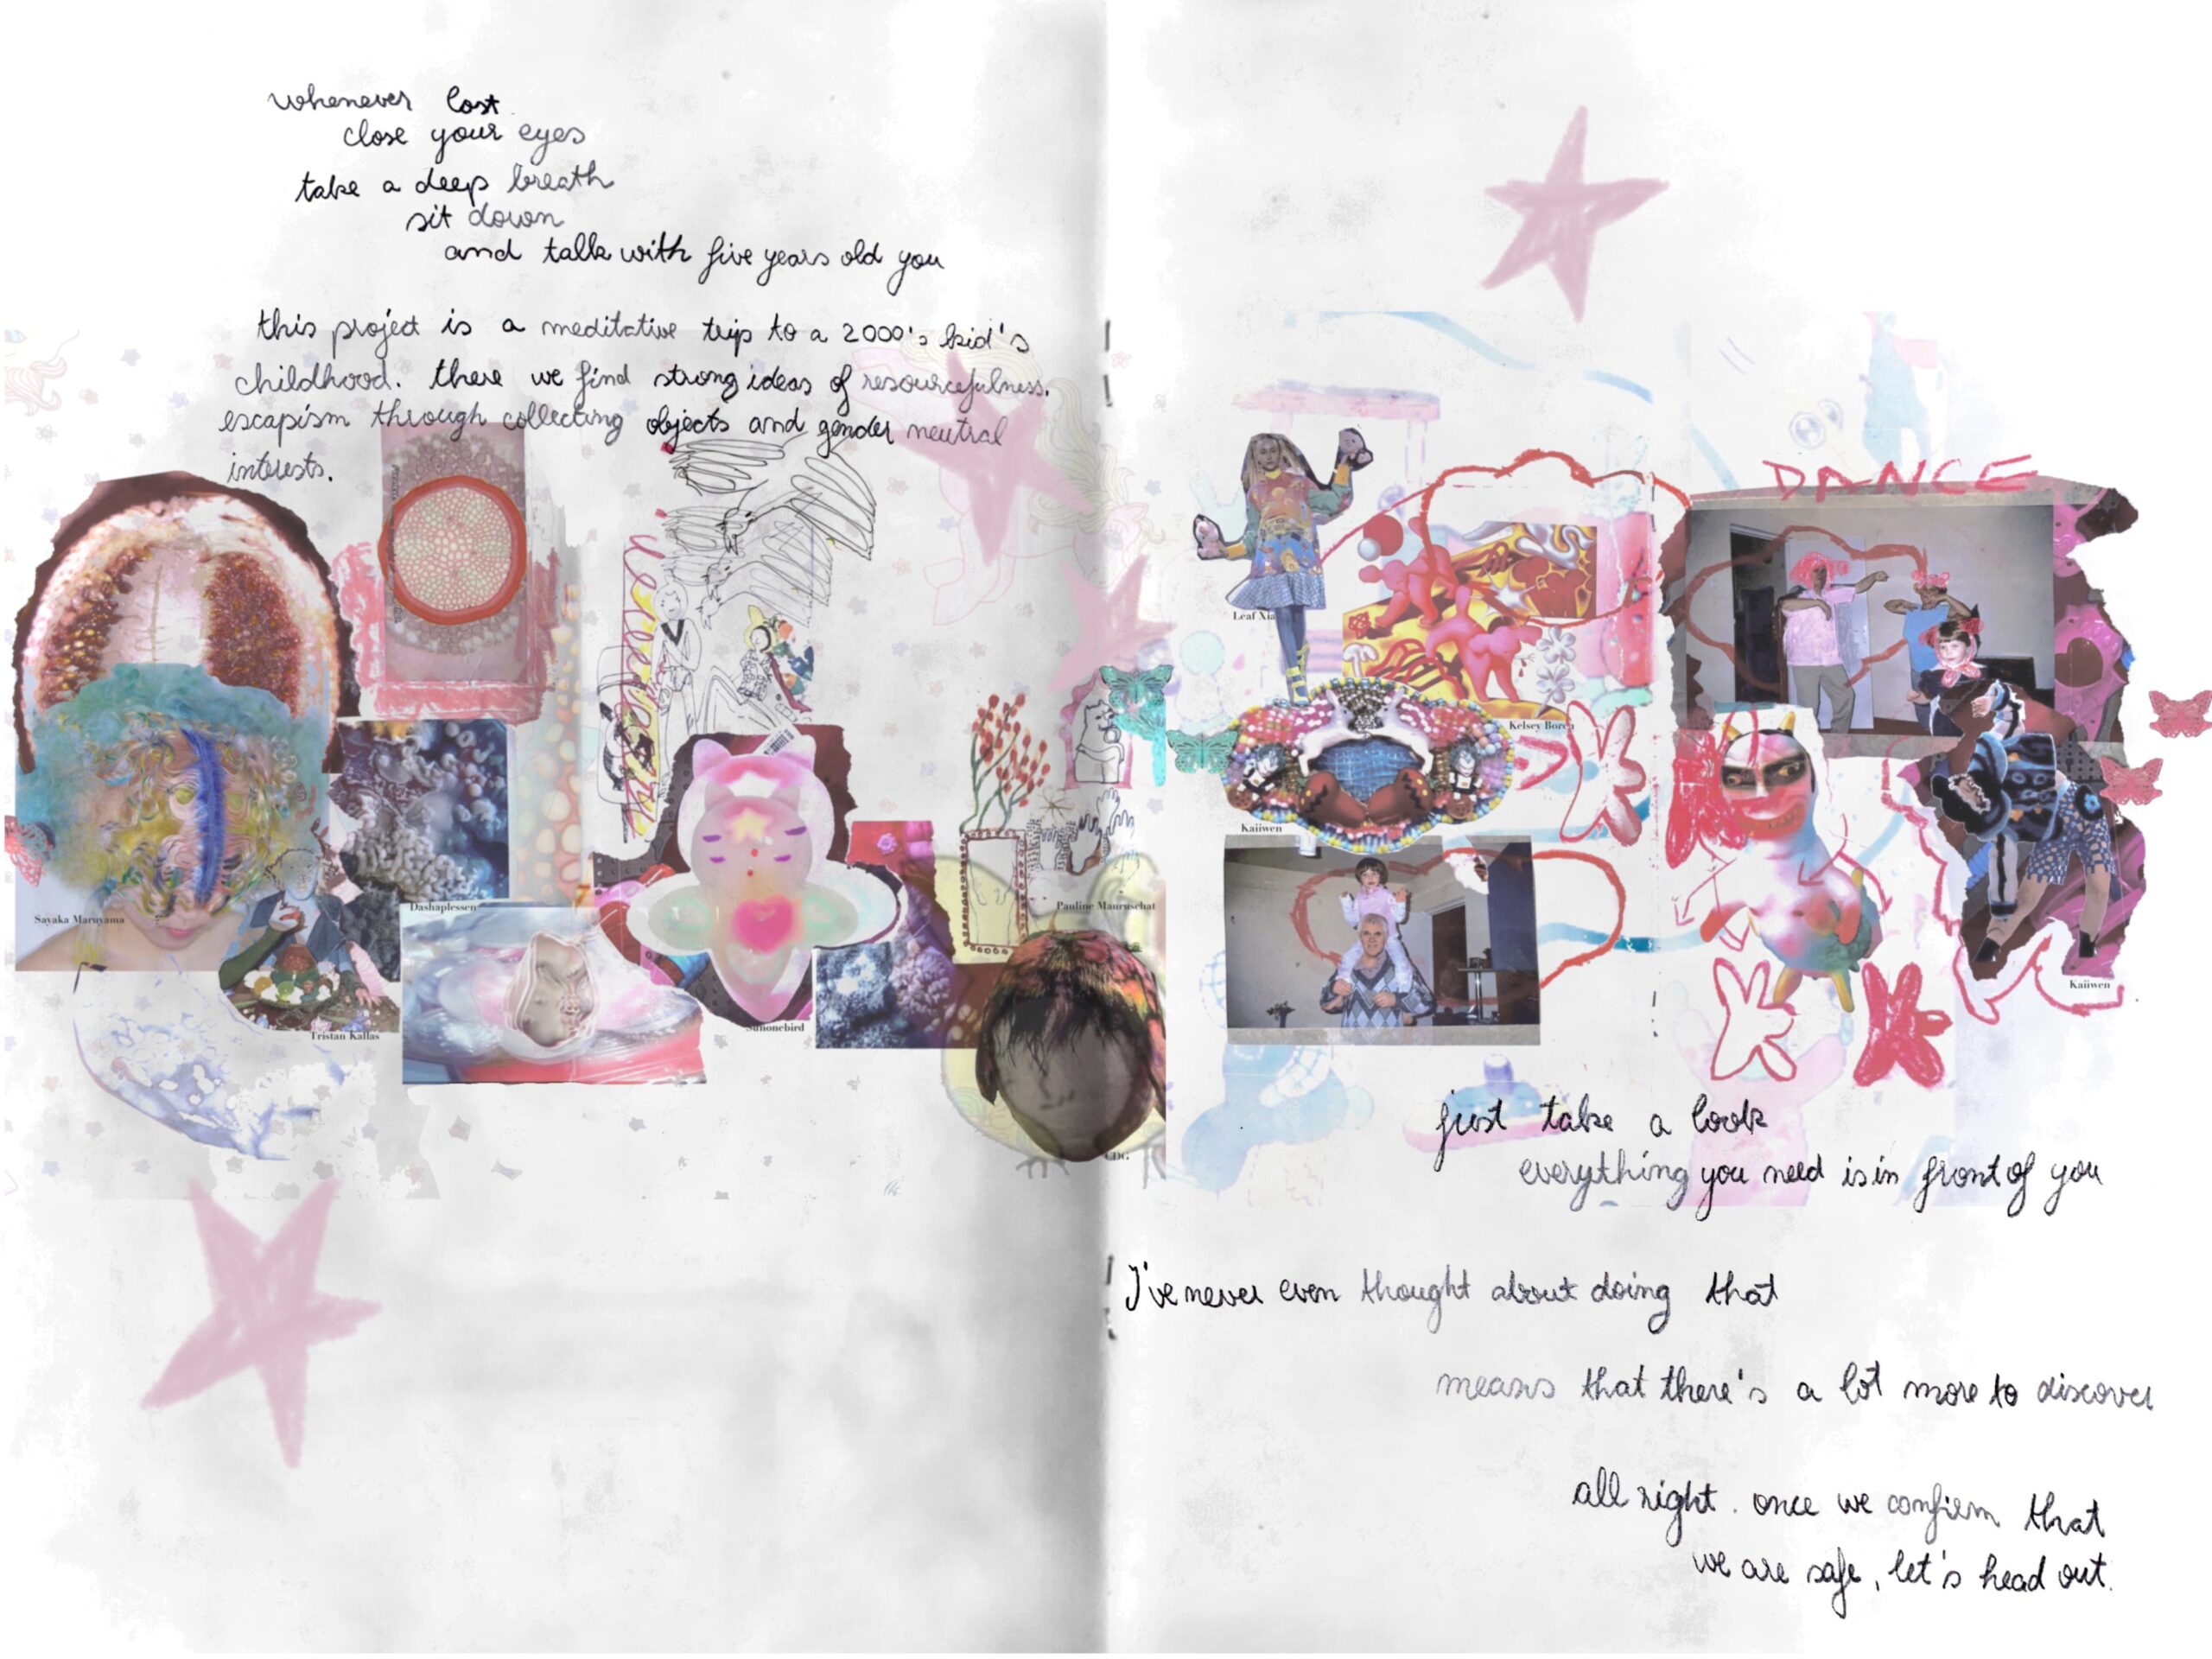 whenever lost
close your eyes
take a deep breath
sit down
and talk with five years old you
this project is a meditative trip to a 2000's kid's
childhood. there we find strong ideas of resourcefulness.
escapism through collecting objects and gender neutral
interests.
Sayaka Maruyama
Dashaplessen
Tristan Kallas
Sunonebird
Pauline Mauruschat
CDG.
Leaf Xia
DANCE
Kelsey Boren
Kaiiwen
Kaiiwen
just take a look
everything you need is in front of you
I've never even thought about doing that
means that there's a lot more to discover
all right. once we confirm that
we are safe, let's head out.